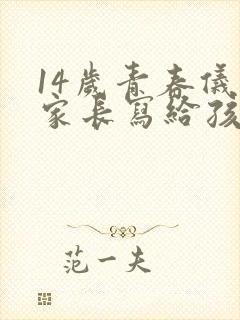 14歲青春儀
家長寫給孩
范一夫